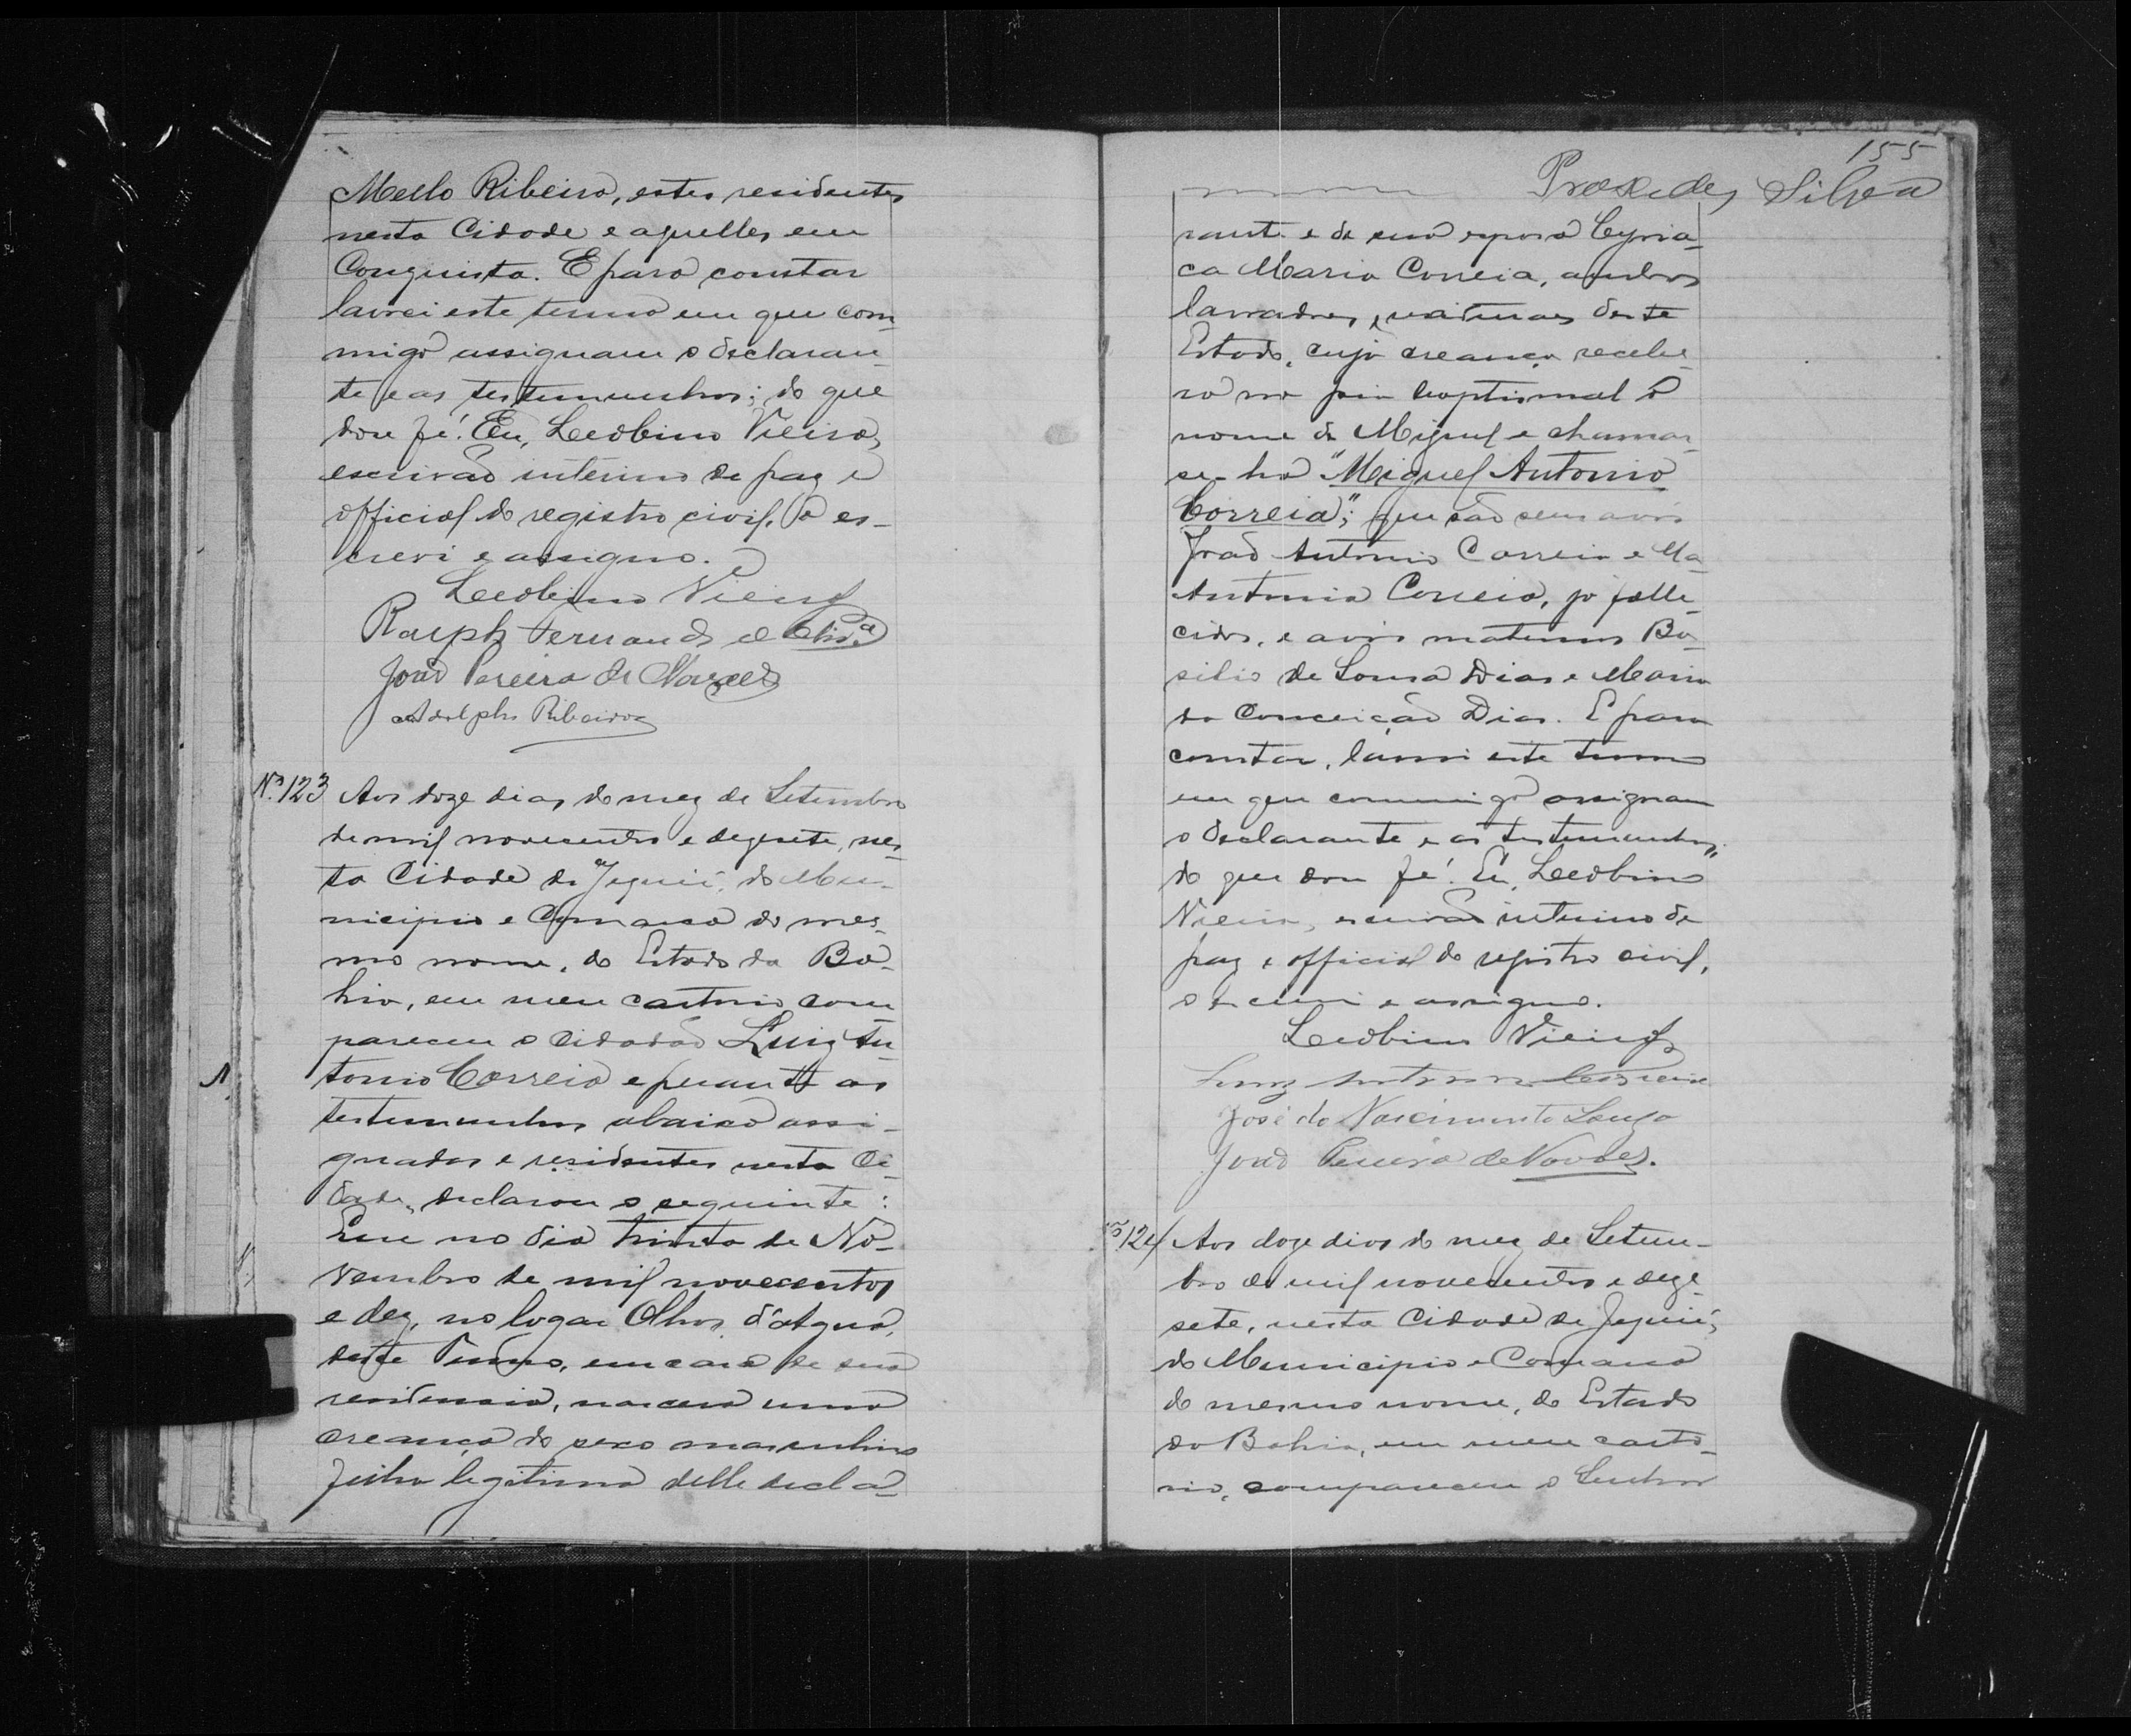 Mello Ribeiro, estes residentes
nesta Cidade e aquelles em
Conquista. E para constar
lavrei este termo em que com
migo assignam o declaran-
te e as testemunhas; do que
dou fé. Eu, Leobino Vieira,
escrivão interino de paz e
official do registro civil, o es-
crevi e assigno.
Leobino Vieira
Ralph Fernandes
João Pereira de Novaes
Adolpho Ribeiro
Nº 123 Aos doze dias do mez de Setembro
de mil novecentos e dezesete, nes-
ta Cidade de Jequié, do Mu-
nicipio e Comarca do mes-
mo nome, do Estado da Ba-
hia, em meu cartorio com
pareceu o cidadão Luiz An-
tonio Correia e perante as
testemunhas abaixo assi-
gnadas e residentes nesta Ci-
dade, declarou o seguinte:
Que no dia trinta de No-
vembro de mil novecentos
e dez, no logar Olhos d'Agua,
deste Termo, em casa de sua
residencia, nascera uma
creança do sexo masculino
filha legitima delle decla-
155
Praxedes Silva
rante e de sua esposa Cyria-
ca Maria Correia, ambos
lavradores, naturaes deste
Estado, cuja creança recebe-
ra na pia baptismal o
nome de Miguel e chamar-
se-ha "Miguel Antonio
Correia"; que são seus avós
João Antonio Correia e Ma
Antonia Correia, já falle-
cidos, e avós maternos Ba-
silio de Sousa Dias e Maria
da Conceição Dias. E para
constar, lavrei este termo
em que commigo assignam
o declarante e as testemunhas,
do que dou fé. Eu, Leobino
Vieira, escrivão interino de
paz e official do registro civil,
o escrevi e assigno.
Leobino Vieira
Luiz Antonio Correia
José do Nascimento Souza
João Pereira de Novaes.
Nº 124 Aos doze dias do mez de Setem-
bro de mil novecentos e deze-
sete, nesta Cidade de Jequié,
do Municipio e Comarca
do mesmo nome, do Estado
da Bahia, em meu carto-
rio, compareceu o Senhor